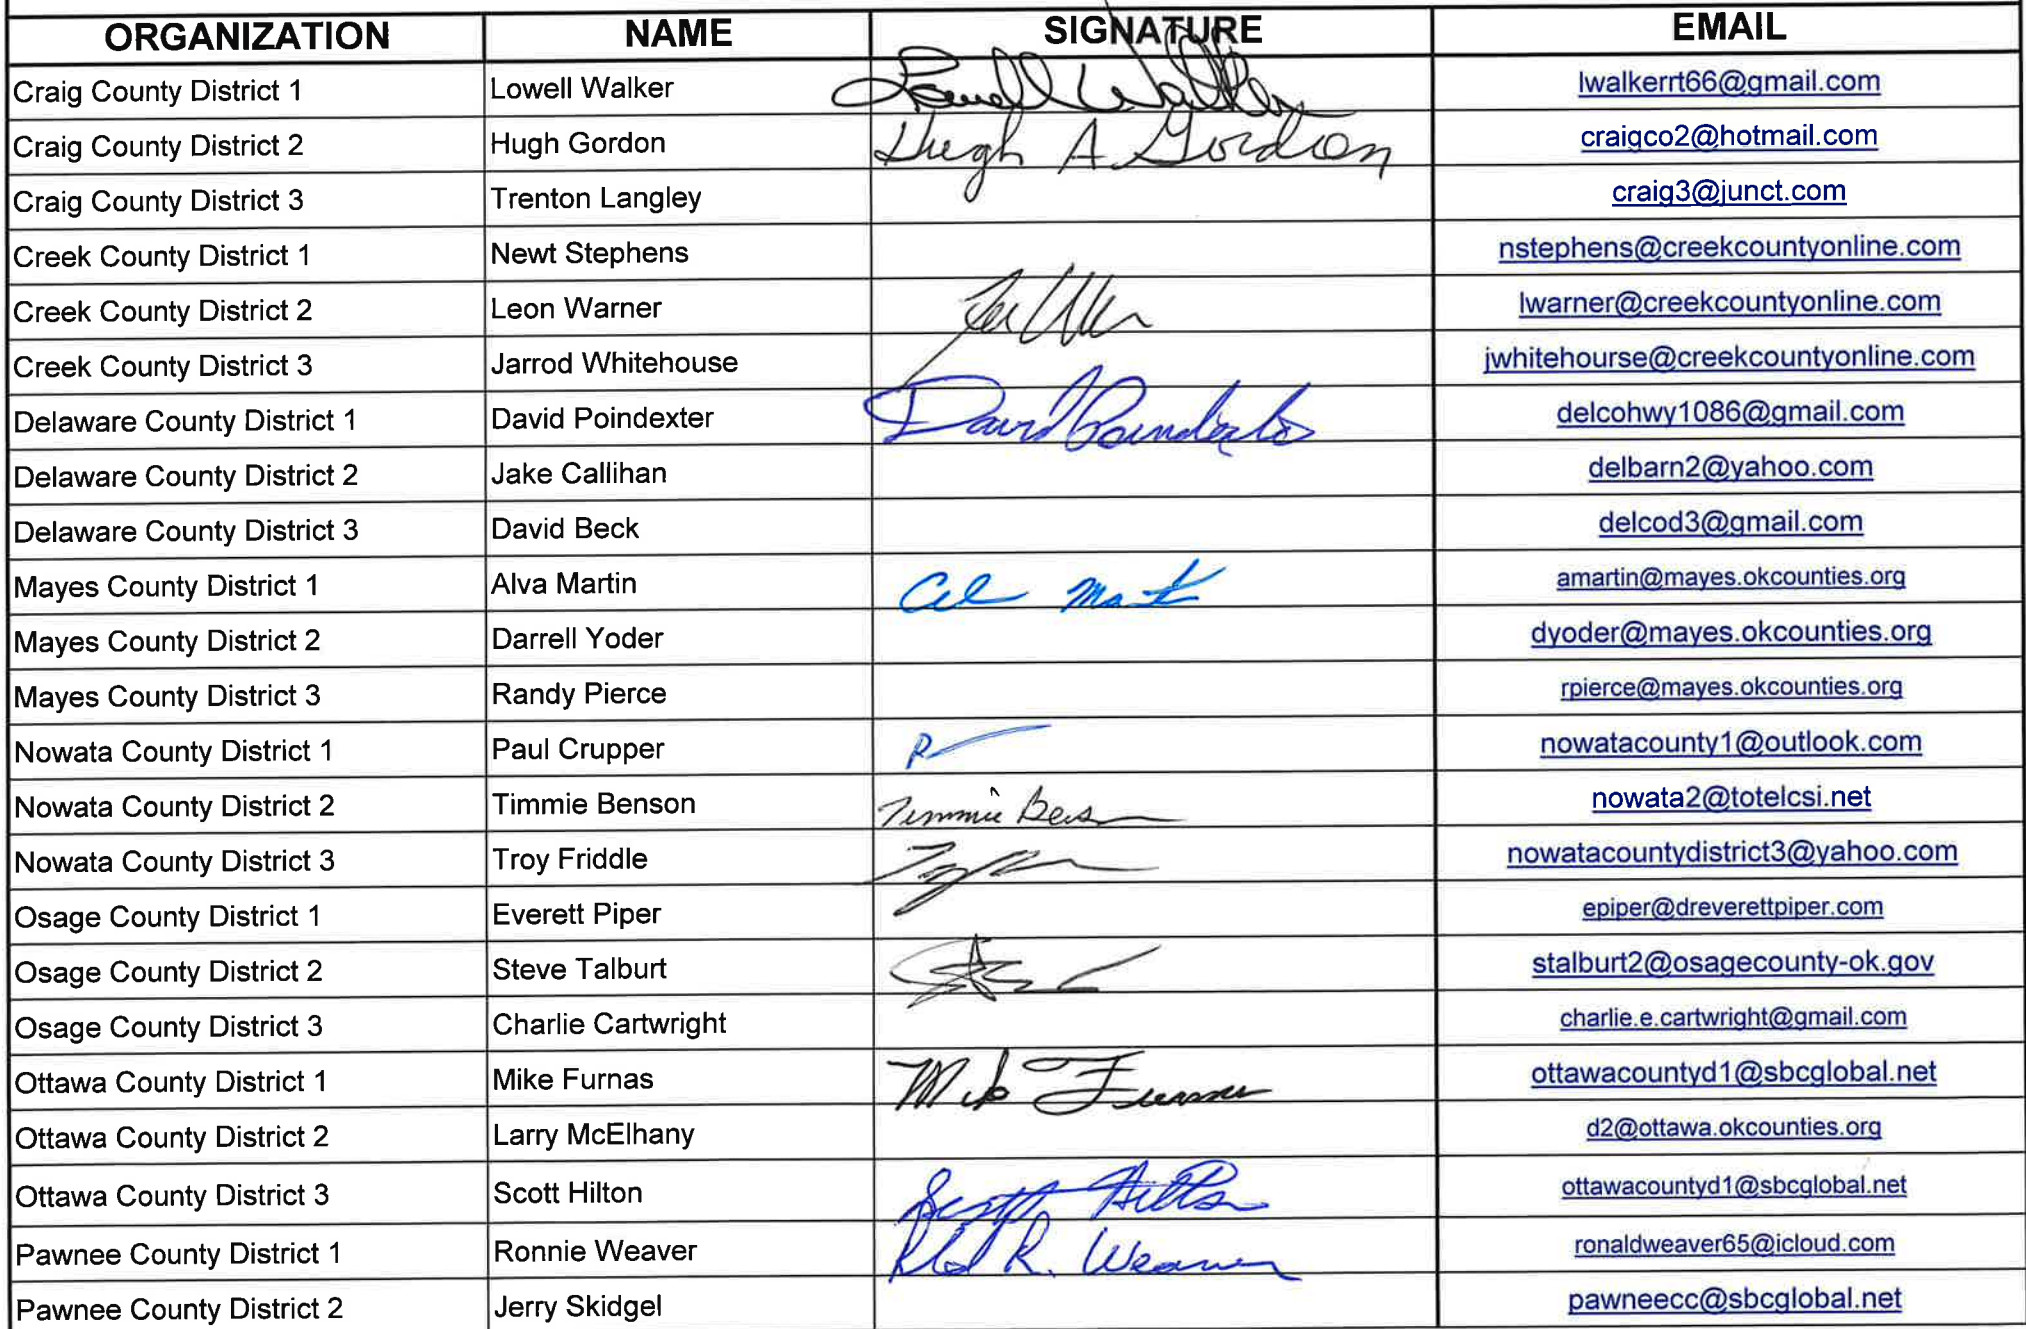 ORGANIZATION NAME SIGNATURE EMAIL
Craig County District 1 Lowell Walker Lowell Walker lwalkerrt66@gmail.com
Craig County District 2 Hugh Gordon Hugh A Gordon craigco2@hotmail.com
Craig County District 3 Trenton Langley craig3@junct.com
Creek County District 1 Newt Stephens nstephens@creekcountyonline.com
Creek County District 2 Leon Warner lwarner@creekcountyonline.com
Creek County District 3 Jarrod Whitehouse jwhitehourse@creekcountyonline.com
Delaware County District 1 David Poindexter David Poindexter delcohwy1086@gmail.com
Delaware County District 2 Jake Callihan delbarn2@yahoo.com
Delaware County District 3 David Beck delcod3@gmail.com
Mayes County District 1 Alva Martin amartin@mayes.okcounties.org
Mayes County District 2 Darrell Yoder dyoder@mayes.okcounties.org
Mayes County District 3 Randy Pierce rpierce@mayes.okcounties.org
Nowata County District 1 Paul Crupper nowatacounty1@outlook.com
Nowata County District 2 Timmie Benson Timmie Benson nowata2@totelcsi.net
Nowata County District 3 Troy Friddle nowatacountydistrict3@yahoo.com
Osage County District 1 Everett Piper epiper@dreverettpiper.com
Osage County District 2 Steve Talburt stalburt2@osagecounty-ok.gov
Osage County District 3 Charlie Cartwright charlie.e.cartwright@gmail.com
Ottawa County District 1 Mike Furnas Mike Furnas ottawacountyd1@sbcglobal.net
Ottawa County District 2 Larry McElhany d2@ottawa.okcounties.org
Ottawa County District 3 Scott Hilton Scott Hilton ottawacountyd1@sbcglobal.net
Pawnee County District 1 Ronnie Weaver R. Weaver ronaldweaver65@icloud.com
Pawnee County District 2 Jerry Skidgel pawneecc@sbcglobal.net